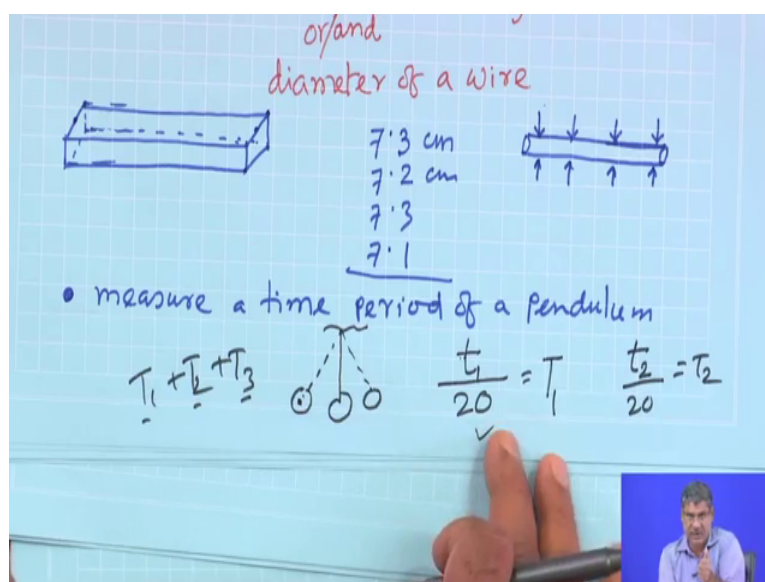 or/and
diameter of a wire
7.3 cm
7.2 cm
7.3
7.1
• measure a time period of a pendulum
T1 + T2 + T3
t1/20 = T1
t2/20 = T2